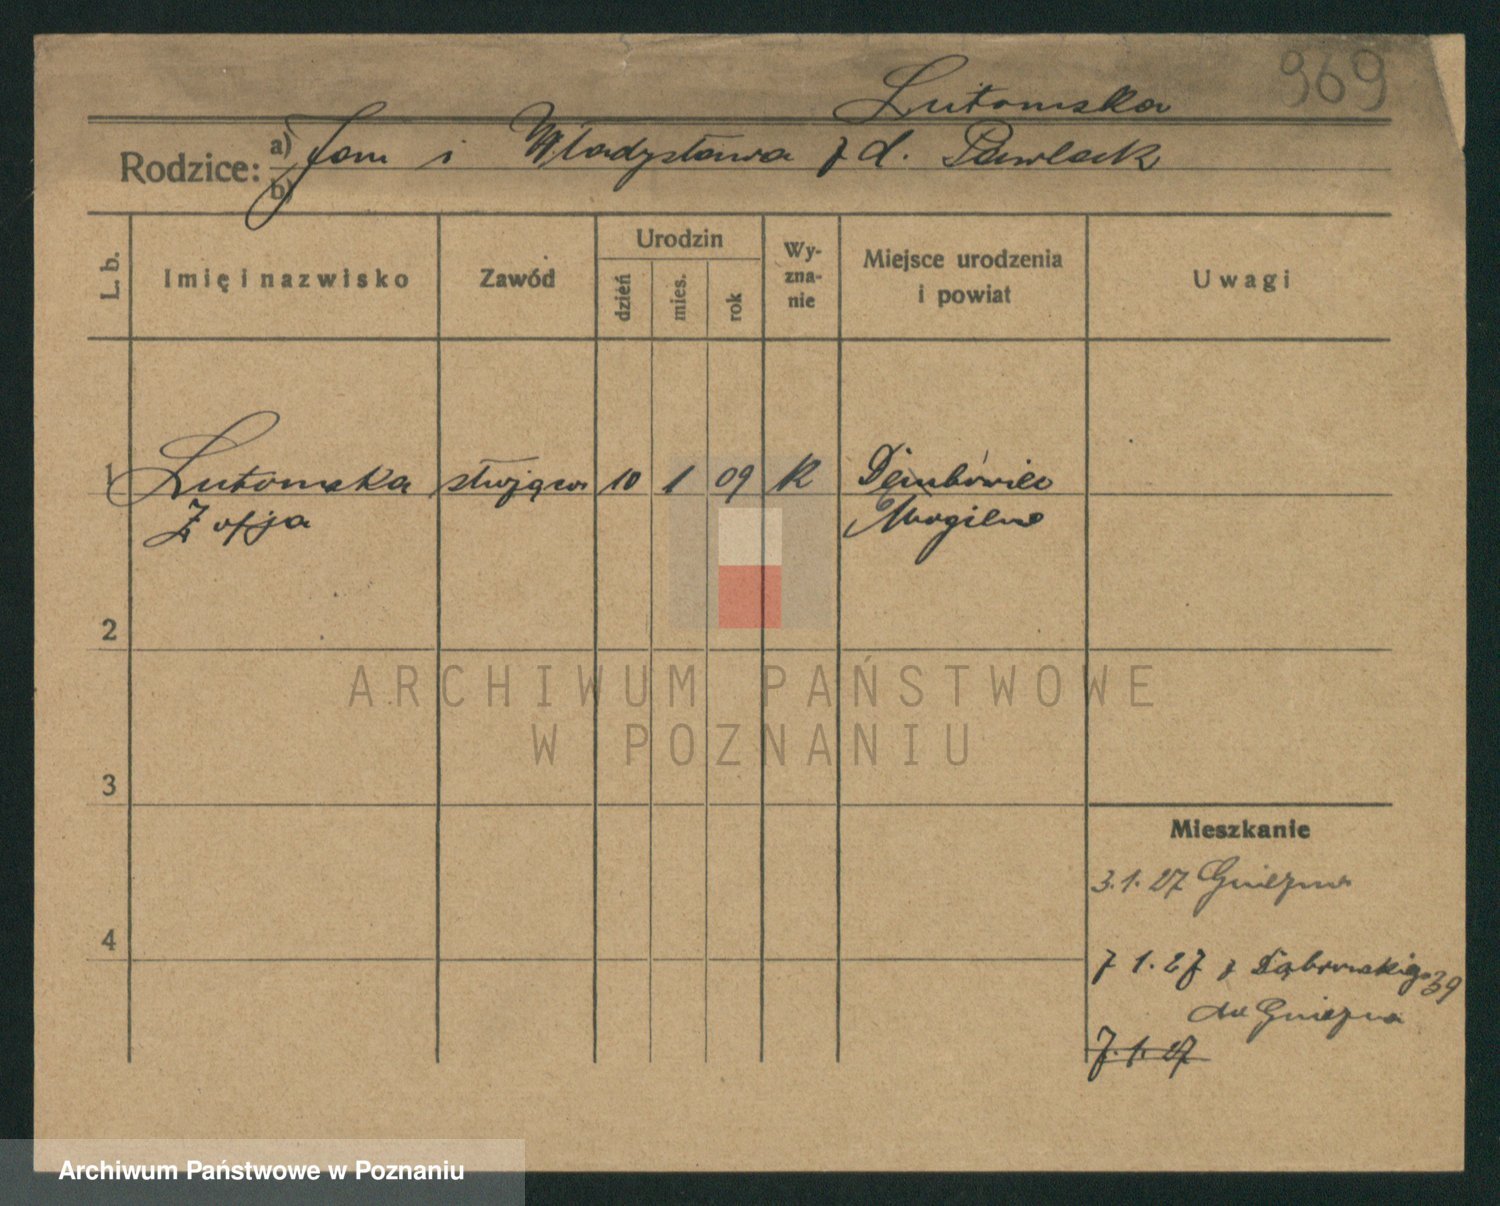 Lutomska
969
Rodzice: a) Jan i Władysława z d. Pawlack
b)
L. b.
Imię i nazwisko
Zawód
Urodzin
dzień
mies.
rok
Wy-
zna-
nie
Miejsce urodzenia
i powiat
Uwagi
1 Lutomska służąca 10 1 09 K Dembówiec
Zofja Mogilno
2
3
4
Mieszkanie
3.1.27 Gniezno
7 1.27 z Dąbrowskiego 39
do Gniezna
7.1.27
ARCHIWUM PAŃSTWOWE
W POZNANIU
Archiwum Państwowe w Poznaniu